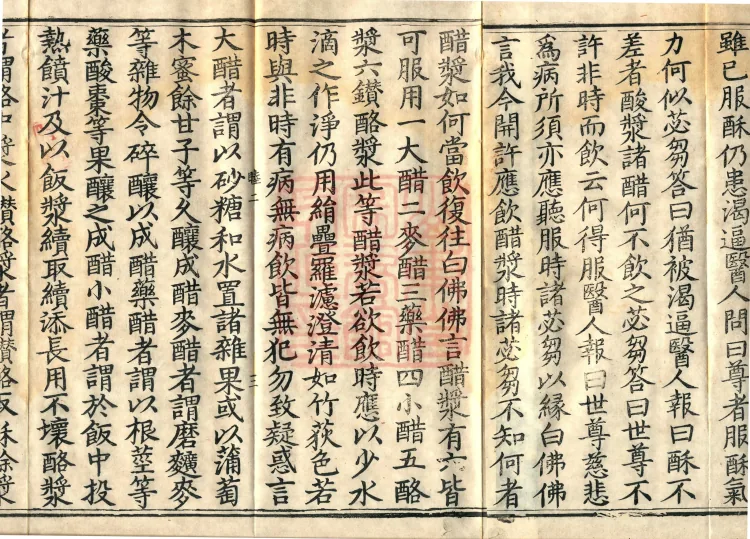 雖已服酥仍患渴逼醫人問曰尊者服酥氣
力何似苾芻荅曰猶被渴逼醫人報曰酥不
差者酸漿諸醋何不飲之苾芻荅曰世尊不
許非時而飲云何得服醫人報曰世尊慈悲
為病所須亦應聽服時諸苾芻以縁白佛佛
言我今開許應飲醋漿時諸苾芻不知何者
醋漿如何當飲復往白佛佛言醋漿有六皆
可服用一大醋二麥醋三藥醋四小醋五酪
漿六鑚酪漿此等醋漿若欲飲時應以少水
滴之作淨仍用絹疊羅濾澄清如竹荻色若
時與非時有病無病飲皆無犯勿致疑惑言
大醋者謂以砂糖和水置諸雜果或以蒲萄
木蜜餘甘子等久釀成醋麥醋者謂磨䴷麥
等雜物令碎釀以成醋藥醋者謂以根莖等
藥酸棗等果釀之成醋小醋者謂於飯中投
熱饙汁及以飯漿續取續添長用不壞酪漿
者謂酪中漿水鑚酪漿者謂鑚酪取酥餘漿